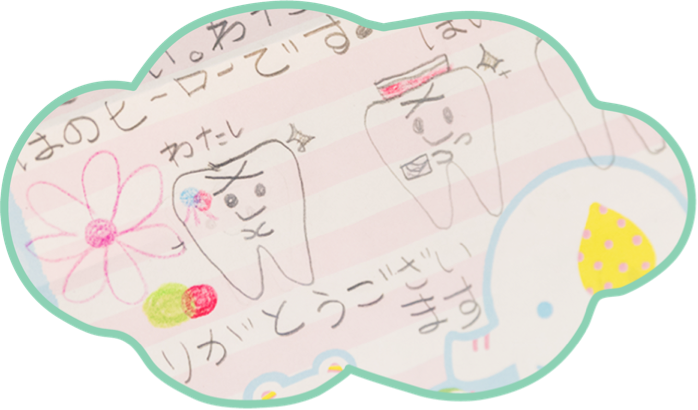 い。わた
はのヒーローです。
は
わたし
りがとうござい
ます